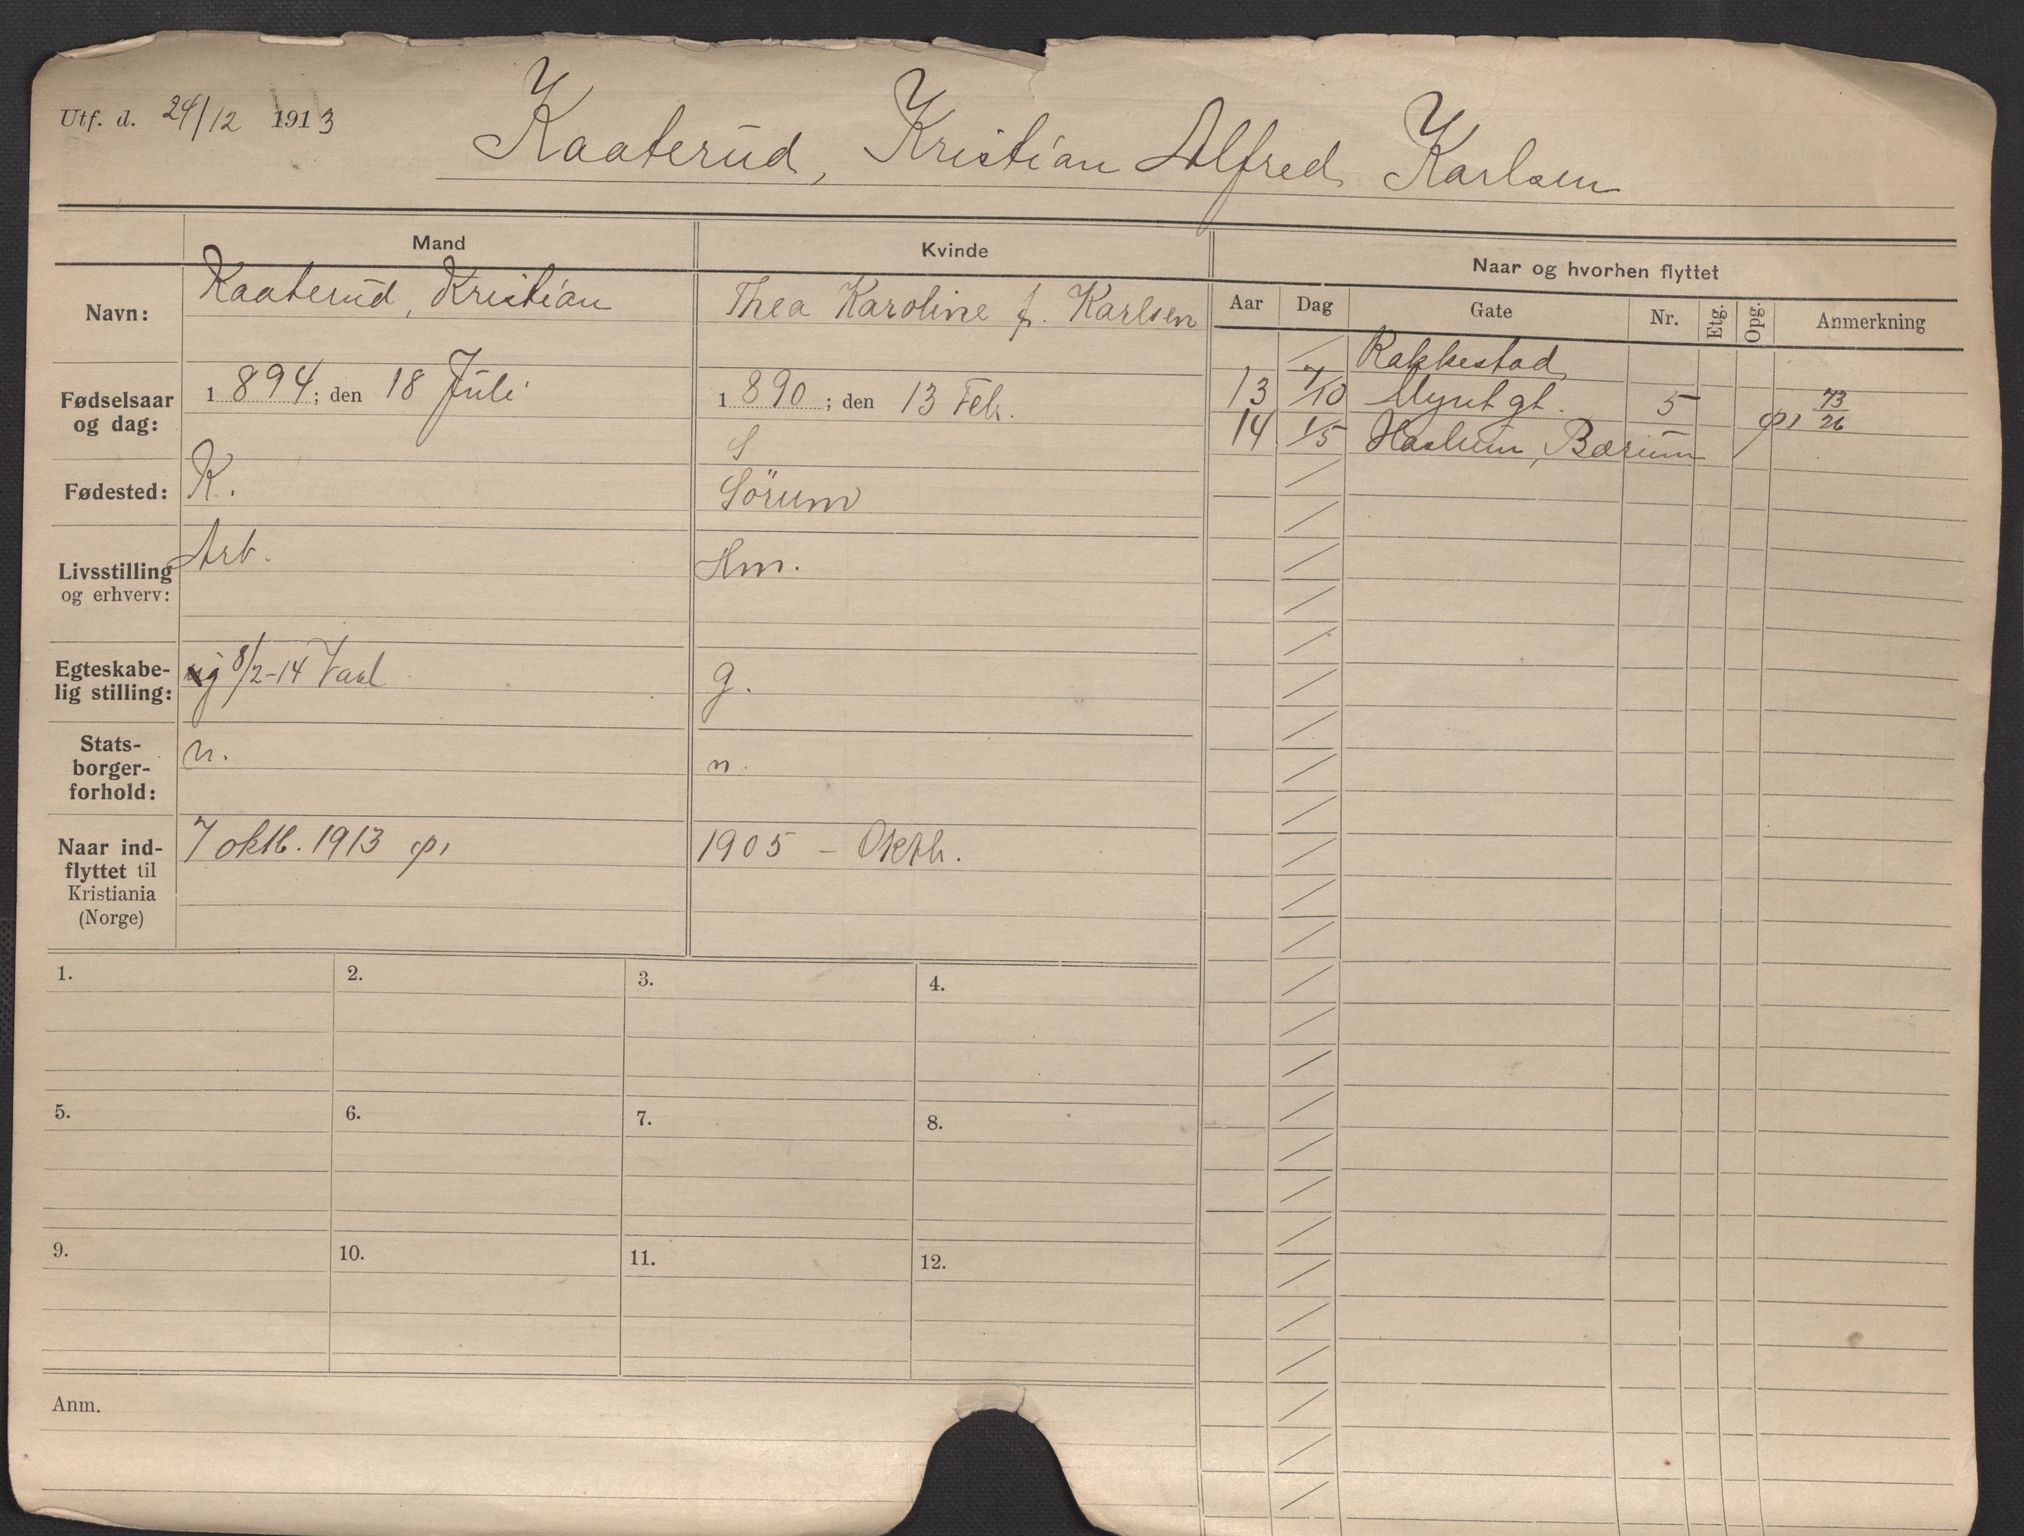 Utf. d. 24/12 1913
Kaaterud, Kristian Alfred Karlsen
Mand
Kvinde
Naar og hvorhen flyttet
Navn:
Kaaterud, Kristian
Thea Karoline f. Karlsen
Aar
Dag
Gate
Nr.
Etg.
Opg.
Anmerkning
Rakkestad
13 7/10 Myntgt. 5 73/26
14 1/5 Haslum, Bærum
Fødselsaar
og dag:
1894; den 18 Juli
1890; den 13 Feb.
S
Fødested:
K.
Sörum
Livsstilling
og erhverv:
Arb.
Hm.
Egteskabe-
lig stilling:
g 8/2-14
g.
Stats-
borger-
forhold:
n.
n.
Naar ind-
flyttet til
Kristiania
(Norge)
7 oktb. 1913
1905 – Oktb.
1.
2.
3.
4.
5.
6.
7.
8.
9.
10.
11.
12.
Anm.